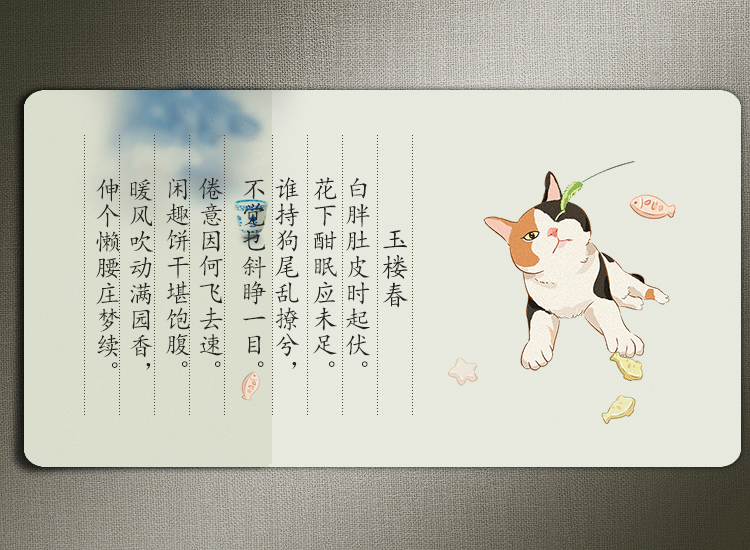 玉楼春
白胖肚皮时起伏。
花下酣眠应未足。
谁持狗尾乱撩兮，
不觉乜斜睁一目。
倦意因何飞去速。
闲趣饼干堪饱腹。
暖风吹动满园香，
伸个懒腰庄梦续。